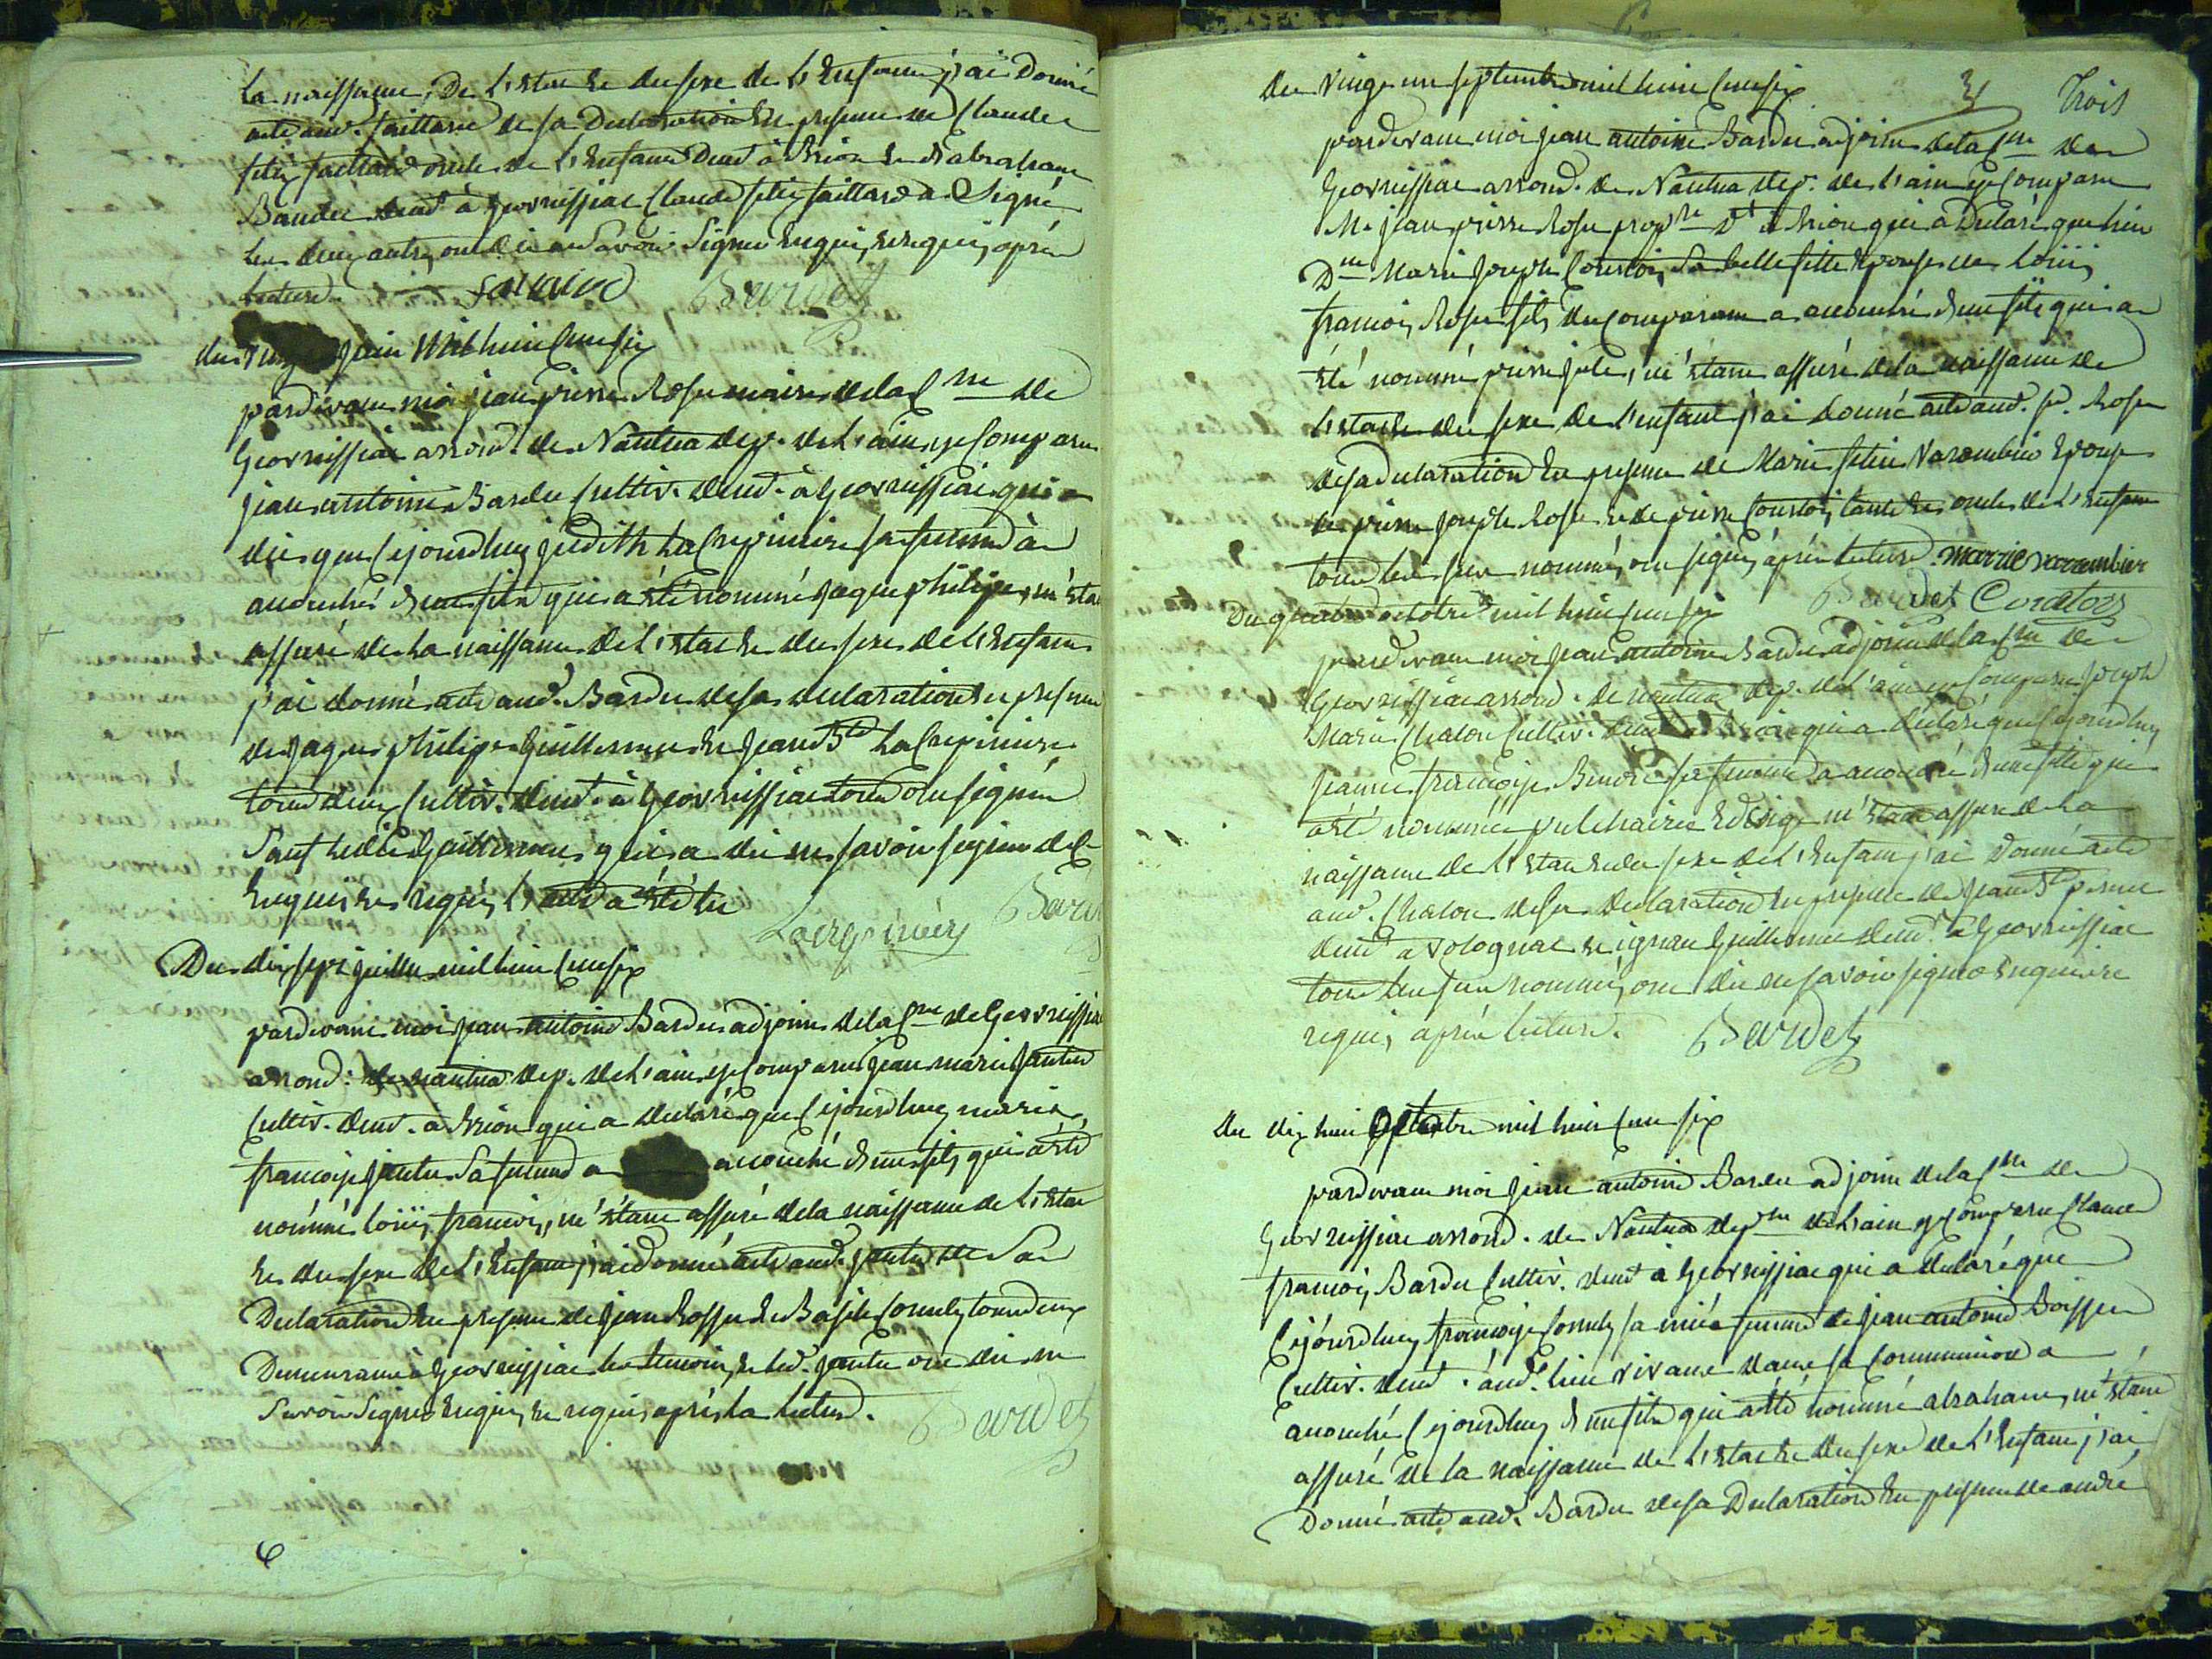 la naissance, De l'Etat Et du sexe de L'Enfant j'ai Donné
acte aud. Saillard de sa Declaration En presence de Claude
felix Saillard oncle de L'Enfant Demt à Brion Et d'abraham
Bardet demt à Geovreissiac Claude felix Saillard a Signé
les deux autres ont dit ne Savoir Signer Enquis, et requis, après
lecture.
Bardet
du juin Mil huit Cent six
pardevant moi jean pierre Rosse maire de la Cne de
Geovreissiac arrond. de Nantua dep. de L'ain, est Comparu
jean antoine Bardet Cultiv. demt. à Geovreissiac qui a
dit que Cejourdhuy judith Lacrepiniere sa femme à
accouché d'un fils qui a été nommé jaque philipe, m'éta
assuré de la naissance de L'Etat Et du sexe de L'Enfant
j'ai donné acte aud. Bardet de sa declaration En presence
de jaques philipe Guillermet Et jean Bte Lacrepiniere
tous deux Cultiv. demt. à Geovreissiac tous ont signé
Sauf ledit Guillermet qui a dit ne savoir signer de ce
Enquis Et requis, L'acte a été lu
Lacrepinière Bardet
Du dix sept juillet mil huit Cent six
pardevant moi jean antoine Bardet adjoint de la Cne de Geovreissia
arrond. de nantua dep. de L'ain, est Comparu jean marie jantet
Cultiv. demt. à Brion qui a declaré que Cejourdhuy marie
françoise jantet Sa femme a accouché d'un fils, qui a été
nommé loüis françois, m'étant assuré de la naissance de L'Etat
Et du sexe de L'Enfant, j'ai donné acte aud. jantet de Sa
Declaration En presence de jean Rosset Et Basile Cornuty tous deux
Demeurant à Geovreissiac les temoins, Et led. jantet ont dit ne
Savoir Signer Enquis, Et requis, après la lecture.
Bardet
du vingt un septembre mil huit Cent six
3 Trois
pardevant moi jean antoine Bardet adjoint de la Cne de
Geovreissiac arrond. de Nantua dep. de L'ain est Comparu
Mr jean pierre Rosse propre Dt à Brion qui a Declaré que hier
De Marie Joseph Courtois, Sa belle fille Epouse de Loüis
françois Rosse fils du Comparant a accouché d'un fils qui a
été nommé pierre jule, m'étant assuré de la naissance de
L'etat Et du sexe de L'enfant j'ai donné acte aud. Sr. Rosse
de sa declaration En presence de Marie felicie Varambier Epouse
de pierre joseph Rosse et de pierre Courtois, tante Et oncle de L'Enfant
tous les sus nommés, ont signé, après lecture. marrie varambier
Bardet Curetois
Du quatre octobre mil huit Cent six
pardevant moi jean antoine Bardet adjoint de la Cne de
Geovreissiac arrond. de nantua dep. de L'ain est Comparu joseph
Marie Chaton Cultiv. demt à Brion qui a declaré que Cejourdhuy
jeanne françoise Benoit sa femme a accouché d'une fille qui
a été nommée pulcherie Edvige m'étant assuré de la
naissance de L'Etat Et du sexe de L'Enfant j'ai donné acte
aud. Chaton de sa declaration En presence de jean Bte
demt a volognac Et ignace Guillermet demt. a Geovreissiac
tous les sus nommés, ont dit ne savoir signer Enquis et
requis, après lecture. Bardet
du dix huit octobre mil huit Cent six
pardevant moi jean antoine Bardet adjoint de la Cne de
Geovreissiac arrond. de Nantua depnt de L'ain est Comparu Claude
françois Bardet Cultiv. demt à Geovreissiac qui a declaré que
Cejourdhuy françoise Cornuty sa niéce femme de jean antoine Boisson
Cultiv. demt. aud. lieu vivant dans sa Communion a
accouché Cejourdhuy d'un fils qui a été nommé abraham, m'étant
assuré de la naissance de L'Etat Et du sexe de L'Enfant j'ai
Donné acte aud. Bardet de sa Declaration En presence de andré